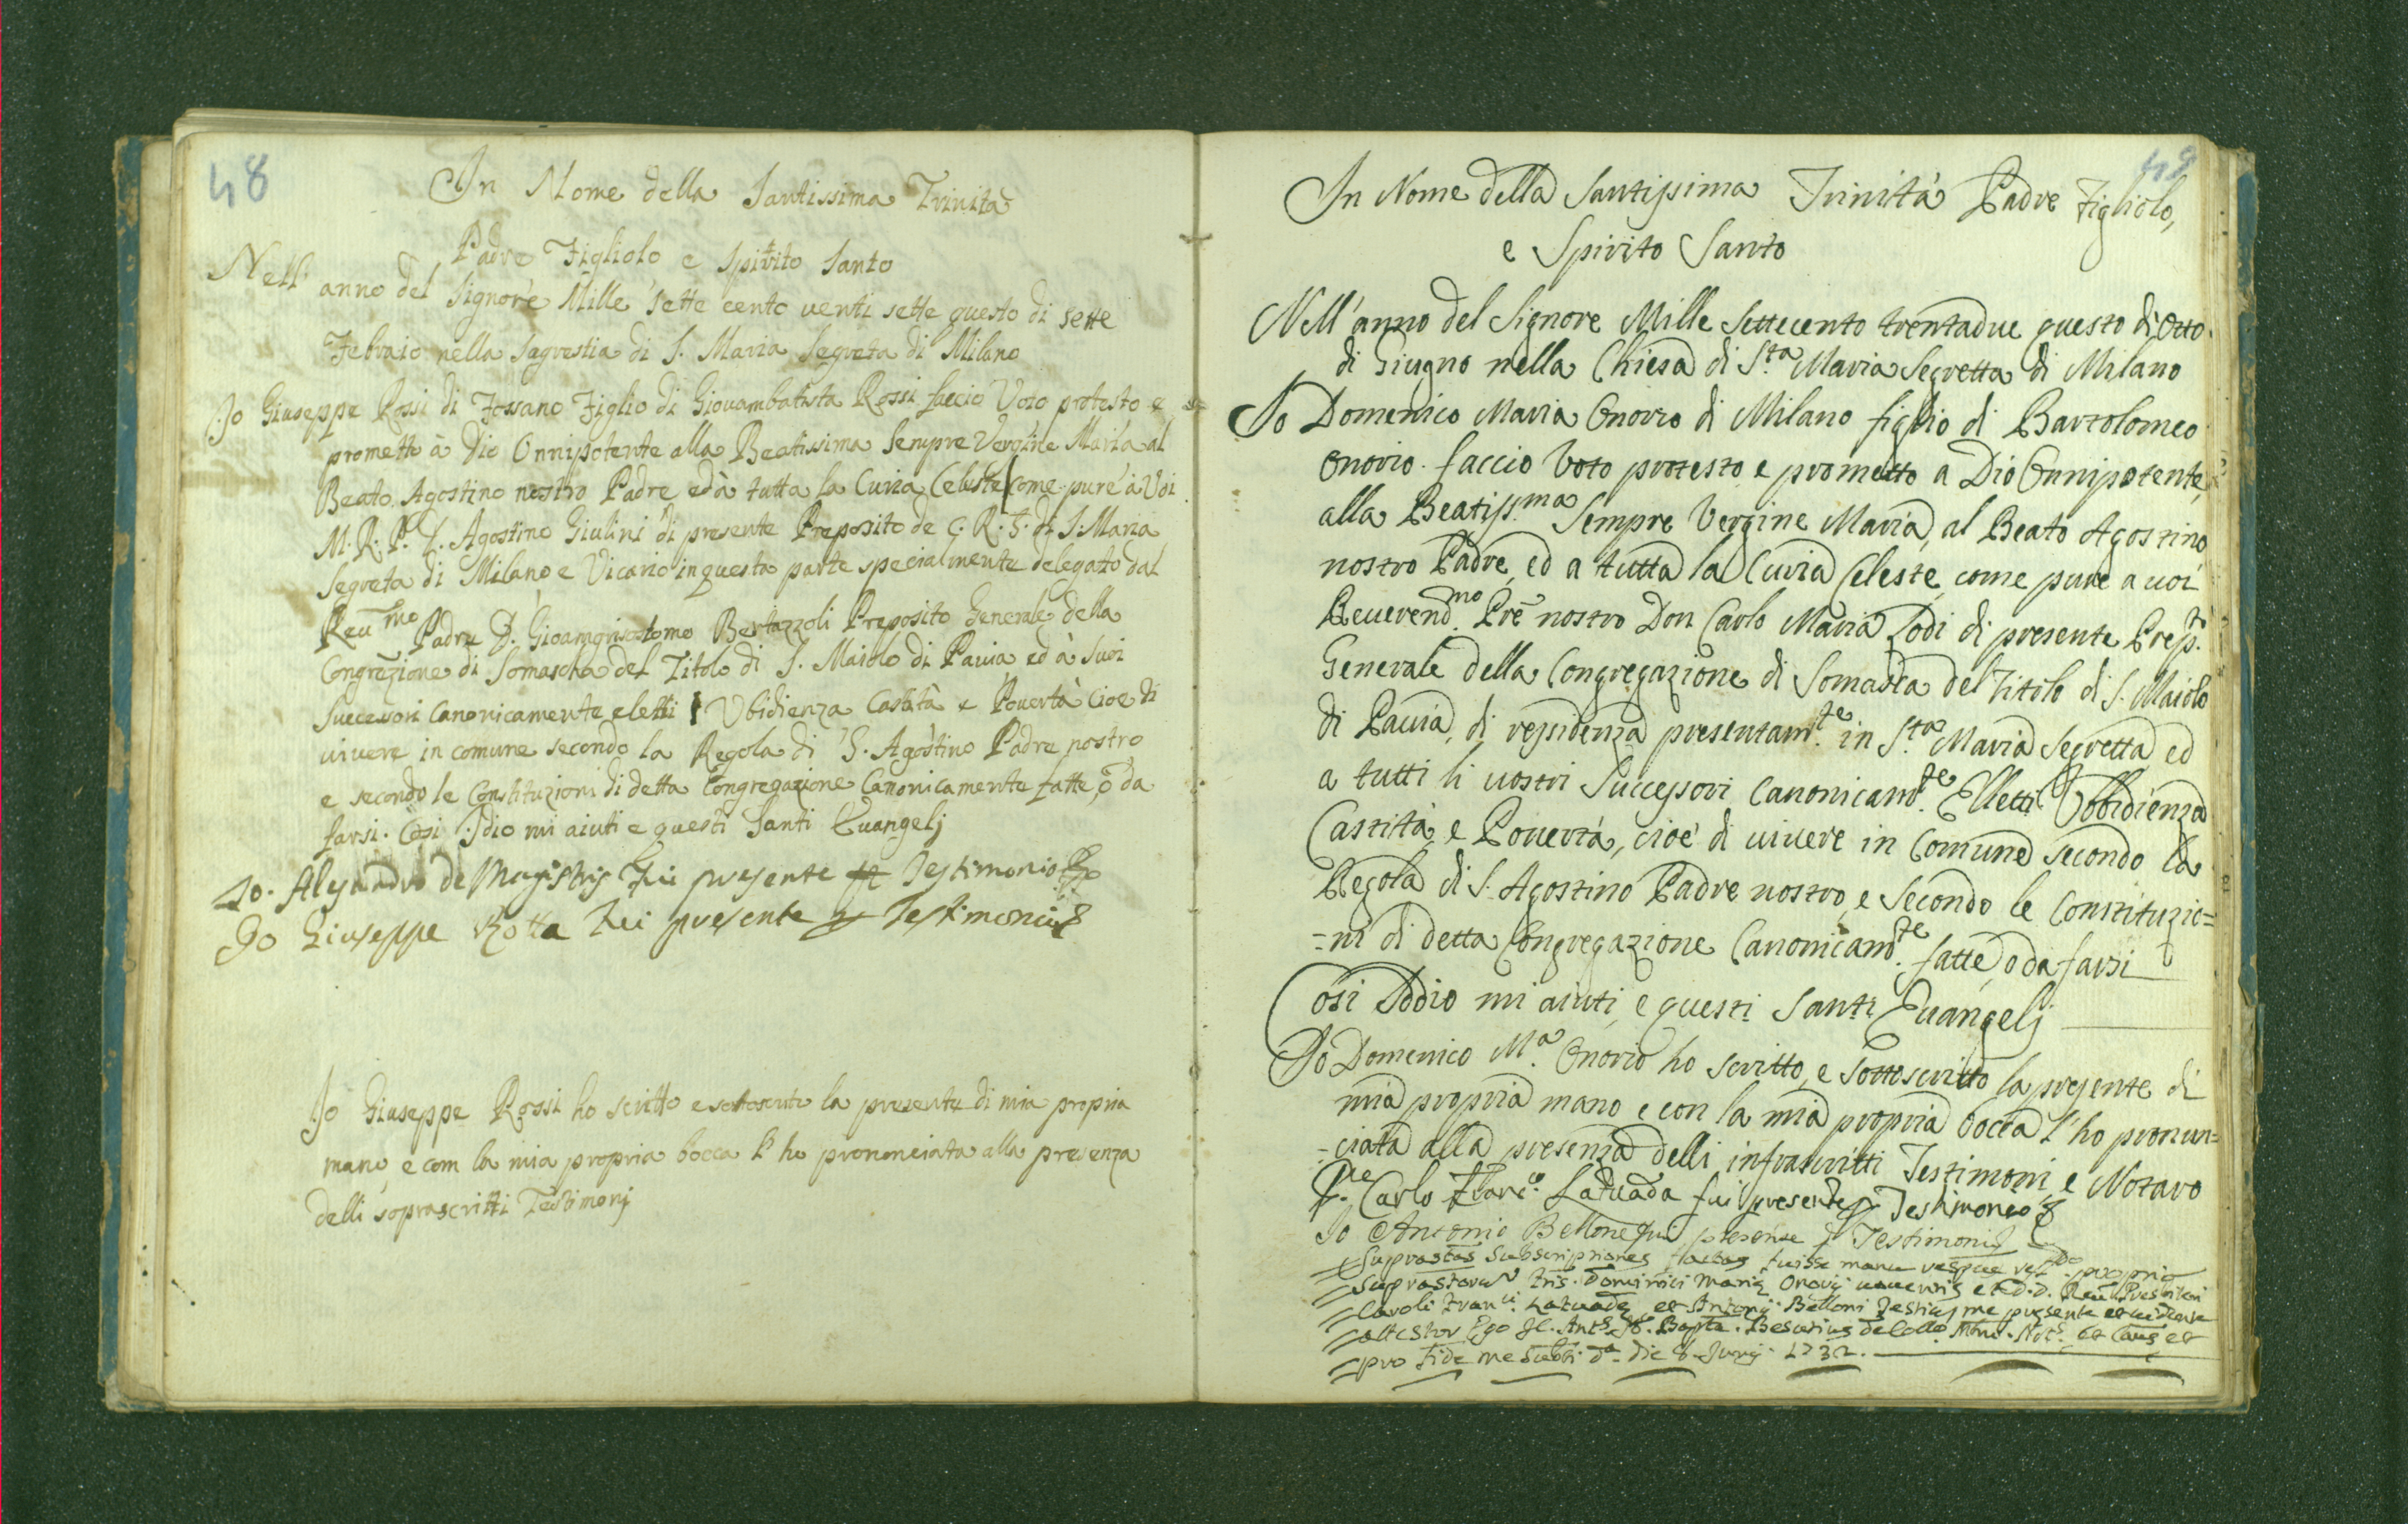 48
In Nome della Santissima Trinità
Padre Figliolo e Spirito Santo
Nell' anno del Signore Mille sette cento venti sette questo di sette
Febraio nella Sagrestia di S. Maria Segreta di Milano
Io Giuseppe Rossi di Fossano Figlio di Giouambatista Rossi faccio Voto protesto e
prometto à Dio Onnipotente alla Beatissima Sempre Vergine Maria al
Beato Agostino nostro Padre ed à tutta la Curia Celeste come pure à Voi
M. R. P. D. Agostino Giulini di presente Preposito de C. R. S. di S. Maria
Segreta di Milano e Vicario in questa parte specialmente delegato dal
Reu.mo Padre D. Gioamgrisostomo Bertazzoli Preposito Generale della
Congrezione di Somascha del Titolo di S. Maiolo di Pauia ed à Suoi
Successori Canonicamente eletti Vbidienza Castità e Pouertà cioe di
viuere in comune secondo la Regola di S. Agostino Padre nostro
e secondo le Constituzioni di detta Congregazione Canonicamente fatte, ò da
farsi. Cosi Idio mi aiuti e questi Santi Euangelj
Io. Alesandro de Magistris Fui presente Testimonio
Io Giuseppe Rotta Fui presente Testimonio
Io Giuseppe Rossi ho scritto e sottoscritto la presente di mia propria
mano, e com la mia propria bocca l'ho prononciata alla presenza
delli soprascritti Testimonj
49
In Nome della Santissima Trinità Padre Figliolo,
e Spirito Santo
Nell'anno del Signore Mille Settecento trentadue questo di otto
di Giugno nella Chiesa di S.ta Maria Segretta di Milano
Io Domenico Maria Onorio di Milano figlio di Bartolomeo
Onorio faccio Voto protesto e prometto a Dio Onnipotente,
alla Beatiss.ma Sempre Vergine Maria, al Beato Agostino
nostro Padre, ed a tutta la Curia Celeste, come pure a uoi
Reuerend.mo Prê nostro Don Carlo Maria Lodi di presente Prep.to
Generale della Congregazione di Somasca del Titolo di S. Maiolo
di Pauia, di ressidenza presentam.te in S.ta Maria Segretta ed
a tutti li uostri Successori Canonicam.te Elletti Vbbidienza
Castità, e Pouertà, cioè di uiuere in Comune secondo la
Regola di S. Agostino Padre nostro, e Secondo le Constituzio=
=ni di detta Congregazione Canonicam.te fatte, o da farsi
Cosi Iddio mi aiuti, e questi Santi Euangelj
Io Domenico M.a Onorio ho scritto, e sottoscritto la presente di
mia propria mano e con la mia propria bocca l'ho pronun=
=ciata alla presenza delli infrascritti Testimoni, e Notaro
P.te Carlo Franc.o Latuada fui presente p Testimonio
Io Antonio Bellone fui presente p Testimonio
Suprastas Subscriptiones factas fuisse manu propria
Suprastorum Dominici Mariæ Onorij et D.D. Reu. Presbiteri
Caroli Fran.ci Latuadæ et Antonij Belloni Testium me presente et uidente
attestor Ego Bapta. Mlni. Not.s et Caus. et
pro fide me Subs. d.a die 8. Junij 1732.